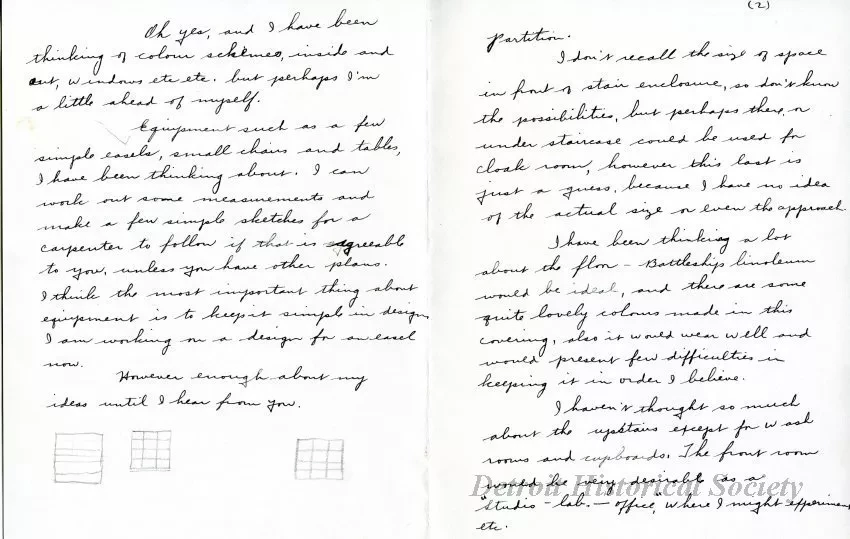 Oh yes, and I have been
thinking of colour schemes, inside and
out, windows etc etc. but perhaps I'm
a little ahead of myself.
Equipment such as a few
simple easels, small chairs and tables,
I have been thinking about. I can
work out some measurements and
make a few simple sketches for a
carpenter to follow if that is agreeable
to you, unless you have other plans.
I think the most important thing about
equipment is to keep it simple in design,
I am working on a design for an easel
now.
However enough about my
ideas until I hear from you.
(2)
Partition.
I don't recall the size of space
in front of stair enclosure, so don't know
the possibilities, but perhaps there, or
under staircase could be used for
cloak room, however this last is
just a guess, because I have no idea
of the actual size or even the approach.
I have been thinking a lot
about the floor – Battleship linoleum
would be ideal, and there are some
quite lovely colours made in this
covering, also it would wear well and
would present few difficulties in
keeping it in order I believe.
I haven't thought so much
about the upstairs except for wash
rooms and cupboards. The front room
would be very desirable as a
"studio – lab. – office", where I might experiment
etc.
Detroit Historical Society